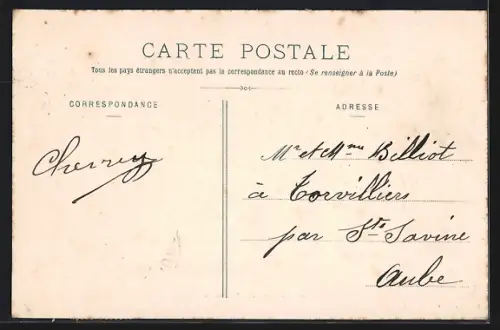 CARTE POSTALE
Tous les pays étrangers n'acceptent pas la correspondance au recto (Se renseigner à la Poste)
CORRESPONDANCE
ADRESSE
Chevrey
Mr et Mme Billiot
à Torvilliers
par Ste Savine
Aube